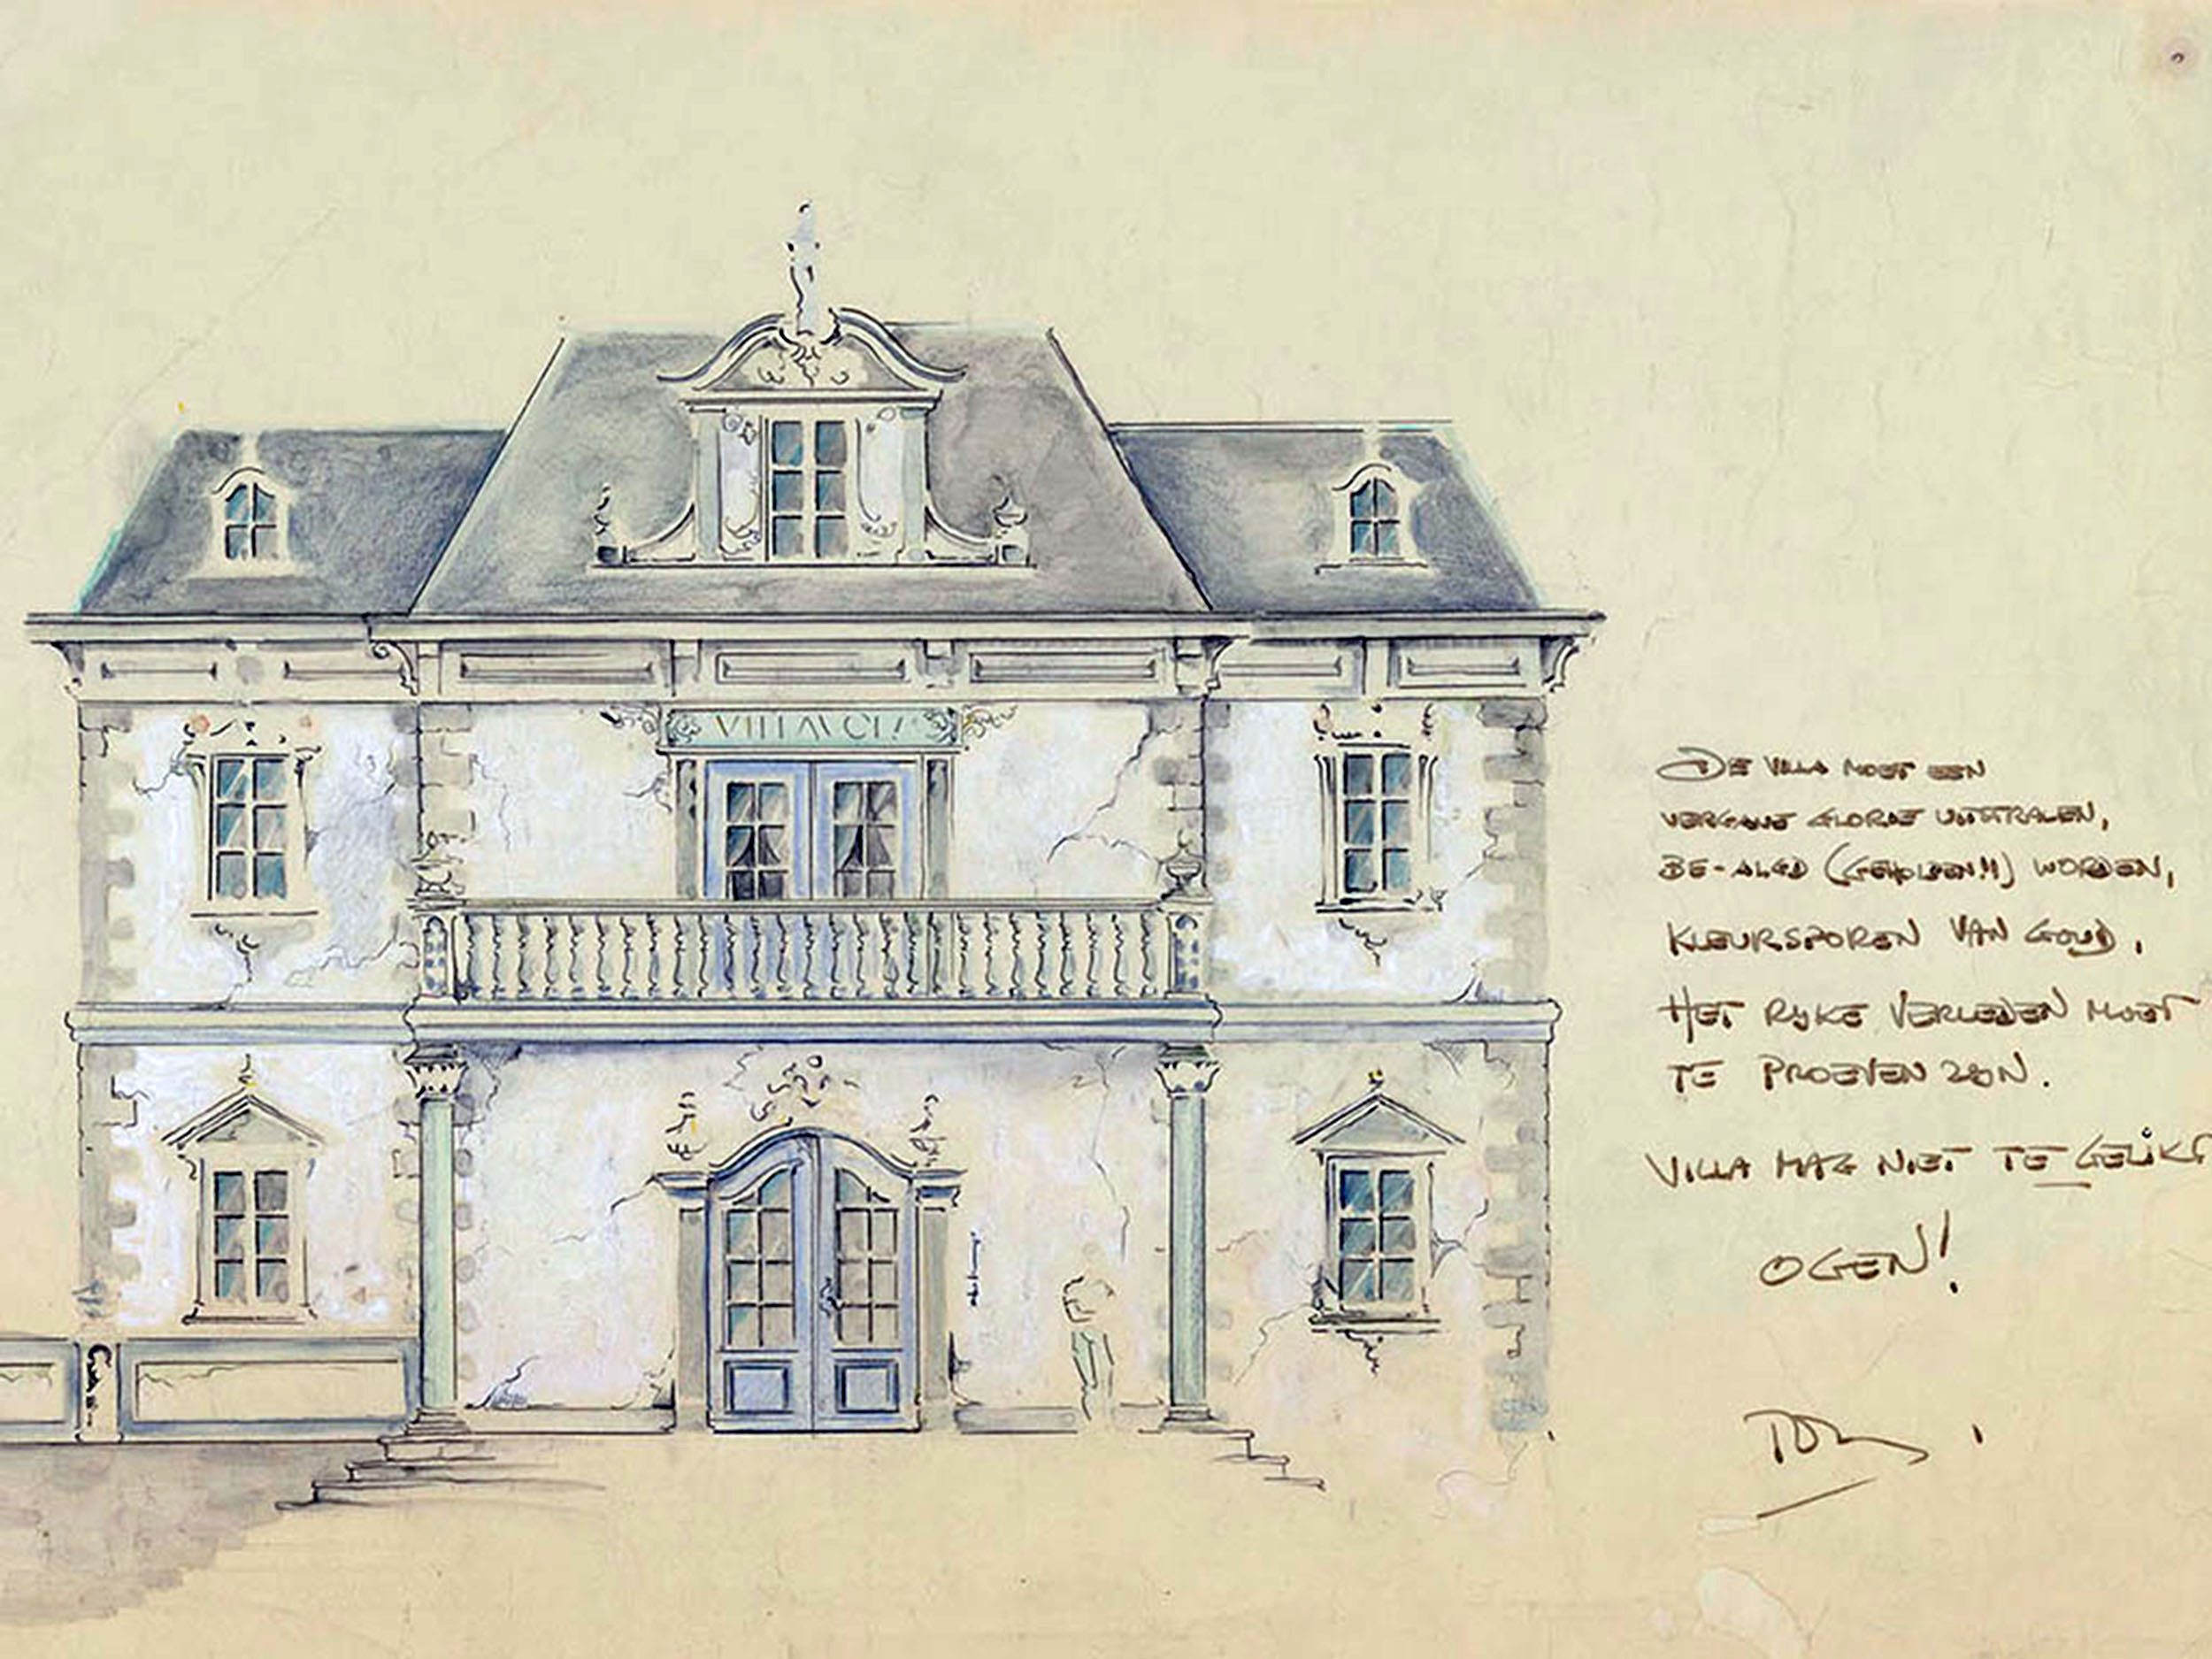 VILLA VOLTA
DE VILLA MOET EEN
VERGANE GLORIE UITSTRALEN,
BE-ALGD (GEHOLPEN!!) WORDEN,
KLEURSPOREN VAN GOUD.
HET RIJKE VERLEDEN MOET
TE PROEVEN ZIJN.
VILLA MAG NIET TE GELIKT
OGEN!
TON